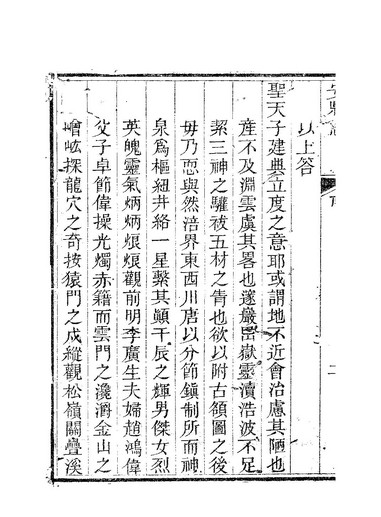 以上答
聖天子建典立度之意耶或謂地不近會治慮其陋也
產不及淵雲虞其畧也邃嚴嶽靈瀆浩波不足
絜三神之驩祓五材之眚也欲以附古領圖之後
毋乃恧與然涪界東西川唐以分節鎮制所而神
泉爲樞紐井絡一星繫其顛千辰之輝男傑女烈
英魄靈氣炳炳烺烺觀前明李廣生夫婦趙鴻偉
父子卓節偉操光燭赤籍而雲門之瀺灂金山之
嶒峵探龍穴之奇按猿門之戍縱觀松嶺關疊溪